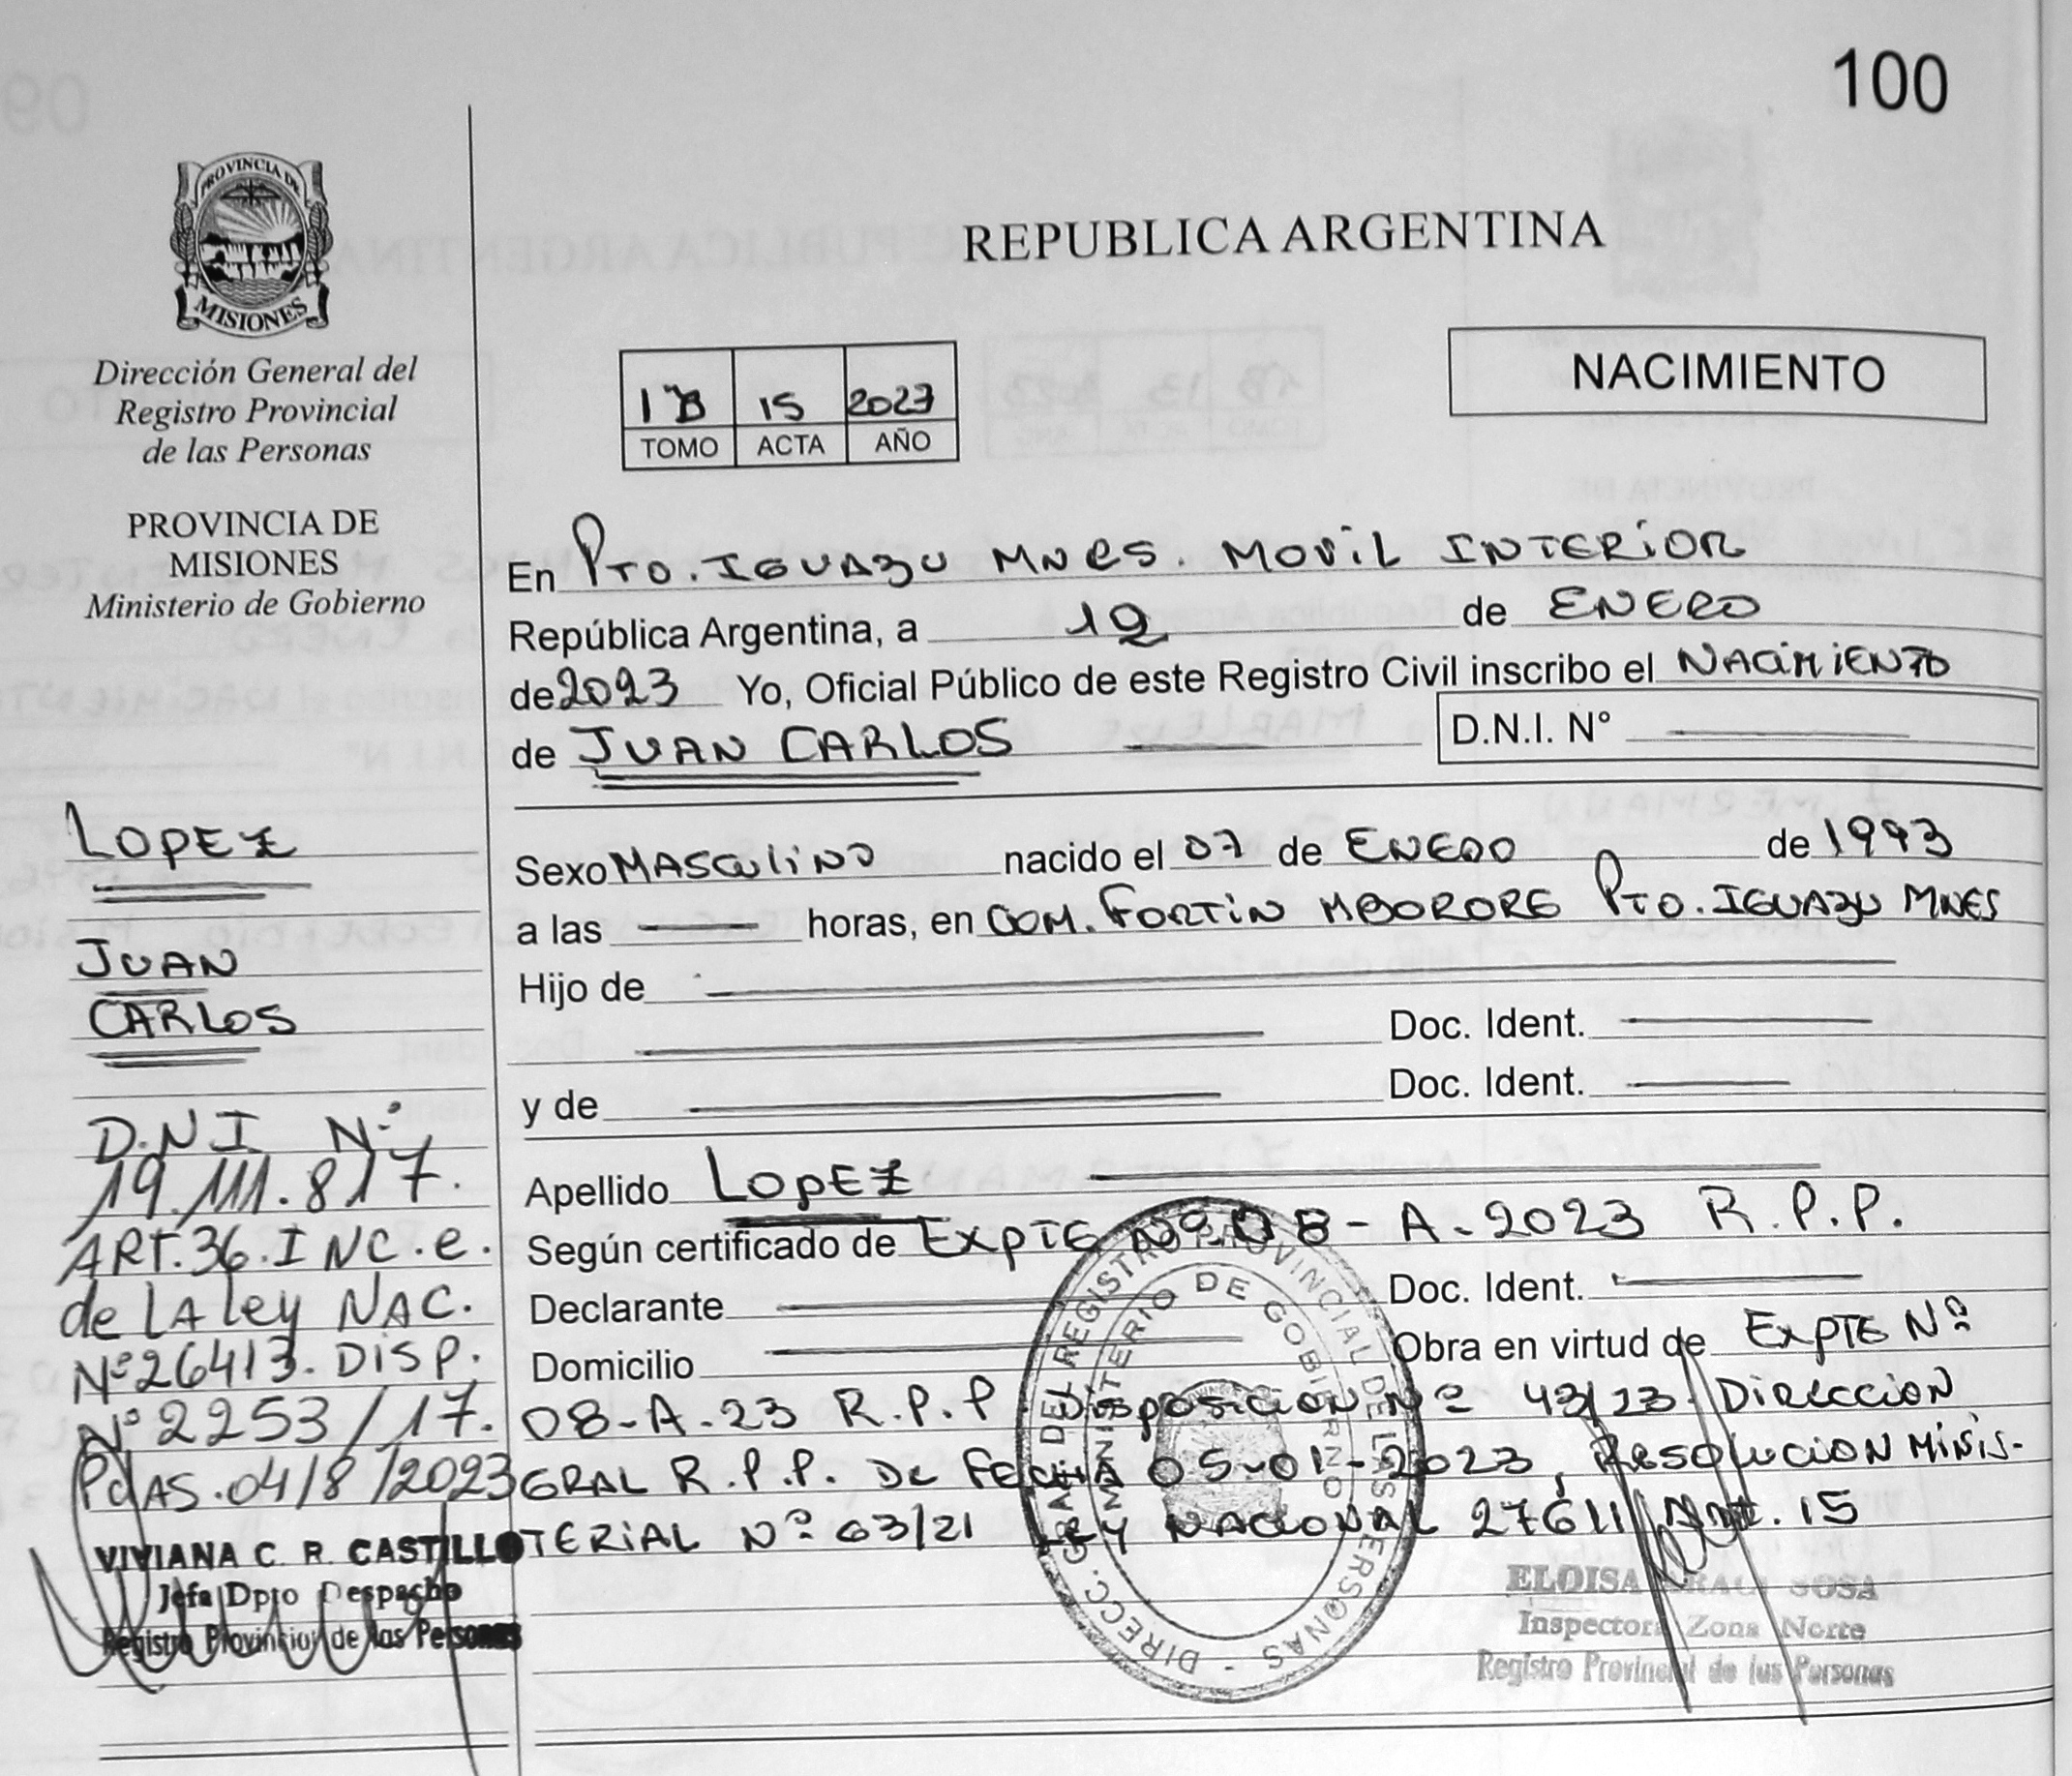 100
PROVINCIA DE
MISIONES
Dirección General del
Registro Provincial
de las Personas
PROVINCIA DE
MISIONES
Ministerio de Gobierno
REPUBLICA ARGENTINA
1B 15 2023
TOMO ACTA AÑO
NACIMIENTO
En PTO. IGUAZU MNES. MOVIL INTERIOR
República Argentina, a 12 de ENERO
de 2023 Yo, Oficial Público de este Registro Civil inscribo el NACIMIENTO
de JUAN CARLOS D.N.I. N°
Sexo MASCULINO nacido el 07 de ENERO de 1993
a las horas, en COM. FORTIN MBORORE PTO. IGUAZU MNES
Hijo de
Doc. Ident.
y de Doc. Ident.
Apellido LOPEZ
Según certificado de EXPTE Nº 08-A-2023 R.P.P.
Declarante Doc. Ident.
Domicilio Obra en virtud de EXPTE Nº
08-A-23 R.P.P. DISPOSICION Nº 43/23 DIRECCION
GRAL R.P.P. DE FECHA 05-01-2023, RESOLUCION MINIS-
TERIAL Nº 63/21 LEY NACIONAL 27611 Art. 15
LOPEZ
JUAN
CARLOS
D.N.I Nº
19.111.817.
ART.36.INC.e.
de LA ley NAC.
Nº26413. DISP.
Nº2253/17.
PdAS.04/8/2023
VIVIANA C. R. CASTILLO
Jefa Dpto Despacho
Registro Provincial de las Personas
DIRECC. GRAL. DEL REGISTRO PROVINCIAL DE LAS PERSONAS -
MINISTERIO DE GOBIERNO
ELOISA SOSA
Inspectora Zona Norte
Registro Provincial de las Personas